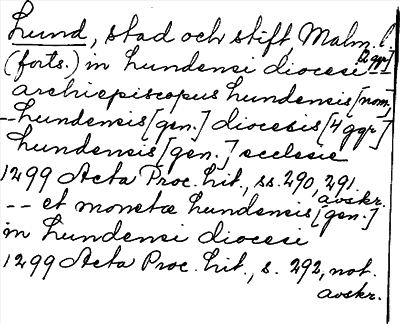 Lund, stad och stift, Malm. l.
(forts.) in lundensi diocesi [2 ggr]
archiepiscopus lundensis [nom.]
-- lundensis [gen.] diocesis [4 ggr]
lundensis [gen.] ecclesie
1299 Acta Proc. lit., ss. 290, 291.
avskr.
-- et monetæ lundensis [gen.]
in lundensi diocesi
1299 Acta Proc. lit., s. 292, not.
avskr.